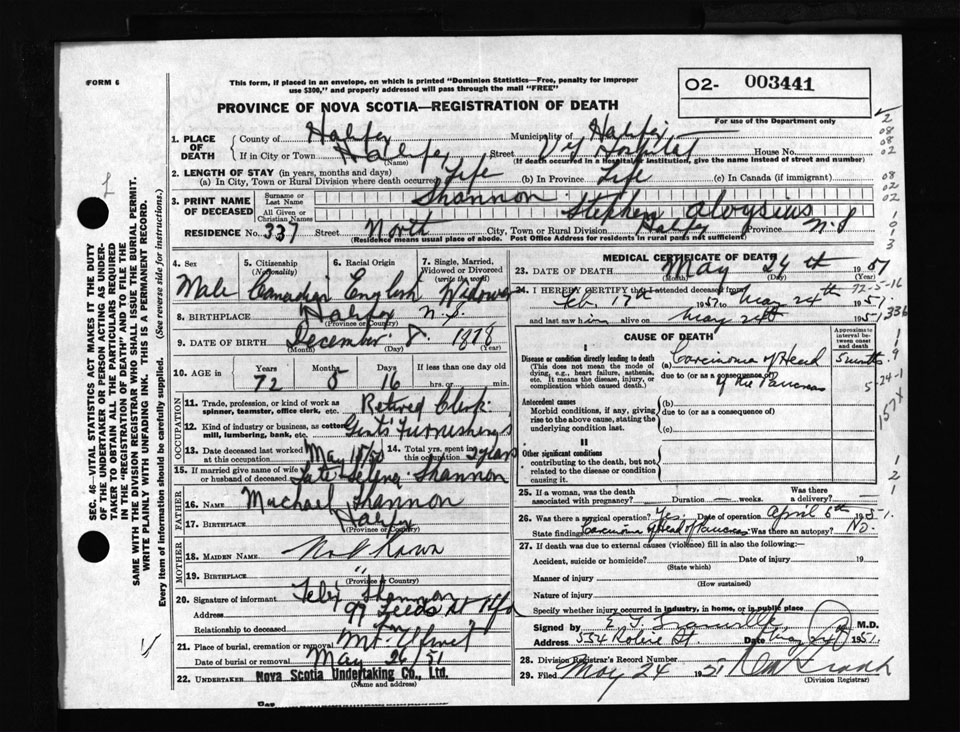 FORM 6
This form, if placed in an envelope, on which is printed "Dominion Statistics—Free, penalty for improper
use $300," and properly addressed will pass through the mail "FREE"
O2- 003441
For use of the Department only
PROVINCE OF NOVA SCOTIA—REGISTRATION OF DEATH
1. PLACE OF DEATH County of Halifax Municipality of Halifax
If in City or Town Halifax (Name) Street VG Hospital House No.
(If death occurred in a Hospital or Institution, give the name instead of street and number)
2. LENGTH OF STAY (in years, months and days)
(a) In City, Town or Rural Division where death occurred Life (b) In Province Life (c) In Canada (if immigrant)
3. PRINT NAME OF DECEASED Surname or Last Name Shannon
All Given or Christian Names Stephen Aloysius
RESIDENCE No. 337 Street North City, Town or Rural Division Halifax Province N.S
(Residence means usual place of abode. Post Office Address for residents in rural parts not sufficient)
4. Sex Male
5. Citizenship (Nationality) Canadian
6. Racial Origin English
7. Single, Married, Widowed or Divorced (write the word) Widower
8. BIRTHPLACE Halifax N.S. (Province or Country)
9. DATE OF BIRTH December 8. 1878
(Month) (Day) (Year)
10. AGE in Years 72 Months 5 Days 16 If less than one day old hrs. or min.
OCCUPATION
11. Trade, profession, or kind of work as spinner, teamster, office clerk, etc. Retired Clerk
12. Kind of industry or business, as cotton mill, lumbering, bank, etc. Gents Furnishings
13. Date deceased last worked at this occupation May 14. Total yrs. spent in this occupation
15. If married give name of wife or husband of deceased Late Shannon
FATHER
16. NAME Michael Shannon
17. BIRTHPLACE Halifax (Province or Country)
MOTHER
18. MAIDEN NAME Not Known
19. BIRTHPLACE " (Province or Country)
20. Signature of informant Felix Shannon
Address 99 Leeds St Hfx
Relationship to deceased Son
21. Place of burial, cremation or removal Mt. Olivet
Date of burial or removal May 26/51
22. UNDERTAKER Nova Scotia Undertaking Co., Ltd.
(Name and address)
MEDICAL CERTIFICATE OF DEATH
23. DATE OF DEATH May 24th 1951
(Month) (Day)
24. I HEREBY CERTIFY that I attended deceased from
Feb. 17th 1951 to May 24th 1951.
and last saw him alive on May 24th 1951
CAUSE OF DEATH
Approximate interval between onset and death
I
Disease or condition directly leading to death
(This does not mean the mode of dying, e.g., heart failure, asthenia, etc. It means the disease, injury, or complication which caused death.
(a) Carcinoma of Head 5 months
due to (or as a consequence of)
of the Pancreas
Antecedent causes
Morbid conditions, if any, giving rise to the above cause, stating the underlying condition last.
(b)
due to (or as a consequence of)
(c)
II
Other significant conditions
contributing to the death, but not related to the disease or condition causing it.
25. If a woman, was the death associated with pregnancy? Duration — weeks. Was there a delivery? —
26. Was there a surgical operation? Yes. Date of operation April 6th 1951.
State findings Carcinoma of Head of Pancreas Was there an autopsy? No.
27. If death was due to external causes (violence) fill in also the following:
Accident, suicide or homicide? (State which) Date of injury 19
Manner of injury (How sustained)
Nature of injury
Specify whether injury occurred in industry, in home, or in public place
Signed by M.D.
Address 554 Robie St Date May 1951.
28. Division Registrar's Record Number
29. Filed May 24 1951
(Division Registrar)
SEC. 46—VITAL STATISTICS ACT MAKES IT THE DUTY
OF THE UNDERTAKER OR PERSON ACTING AS UNDER-
TAKER TO OBTAIN ALL THE PARTICULARS REQUIRED
IN THE "REGISTRATION OF DEATH" AND TO FILE THE
SAME WITH THE DIVISION REGISTRAR WHO SHALL ISSUE THE BURIAL PERMIT.
WRITE PLAINLY WITH UNFADING INK. THIS IS A PERMANENT RECORD.
Every item of information should be carefully supplied. (See reverse side for instructions.)